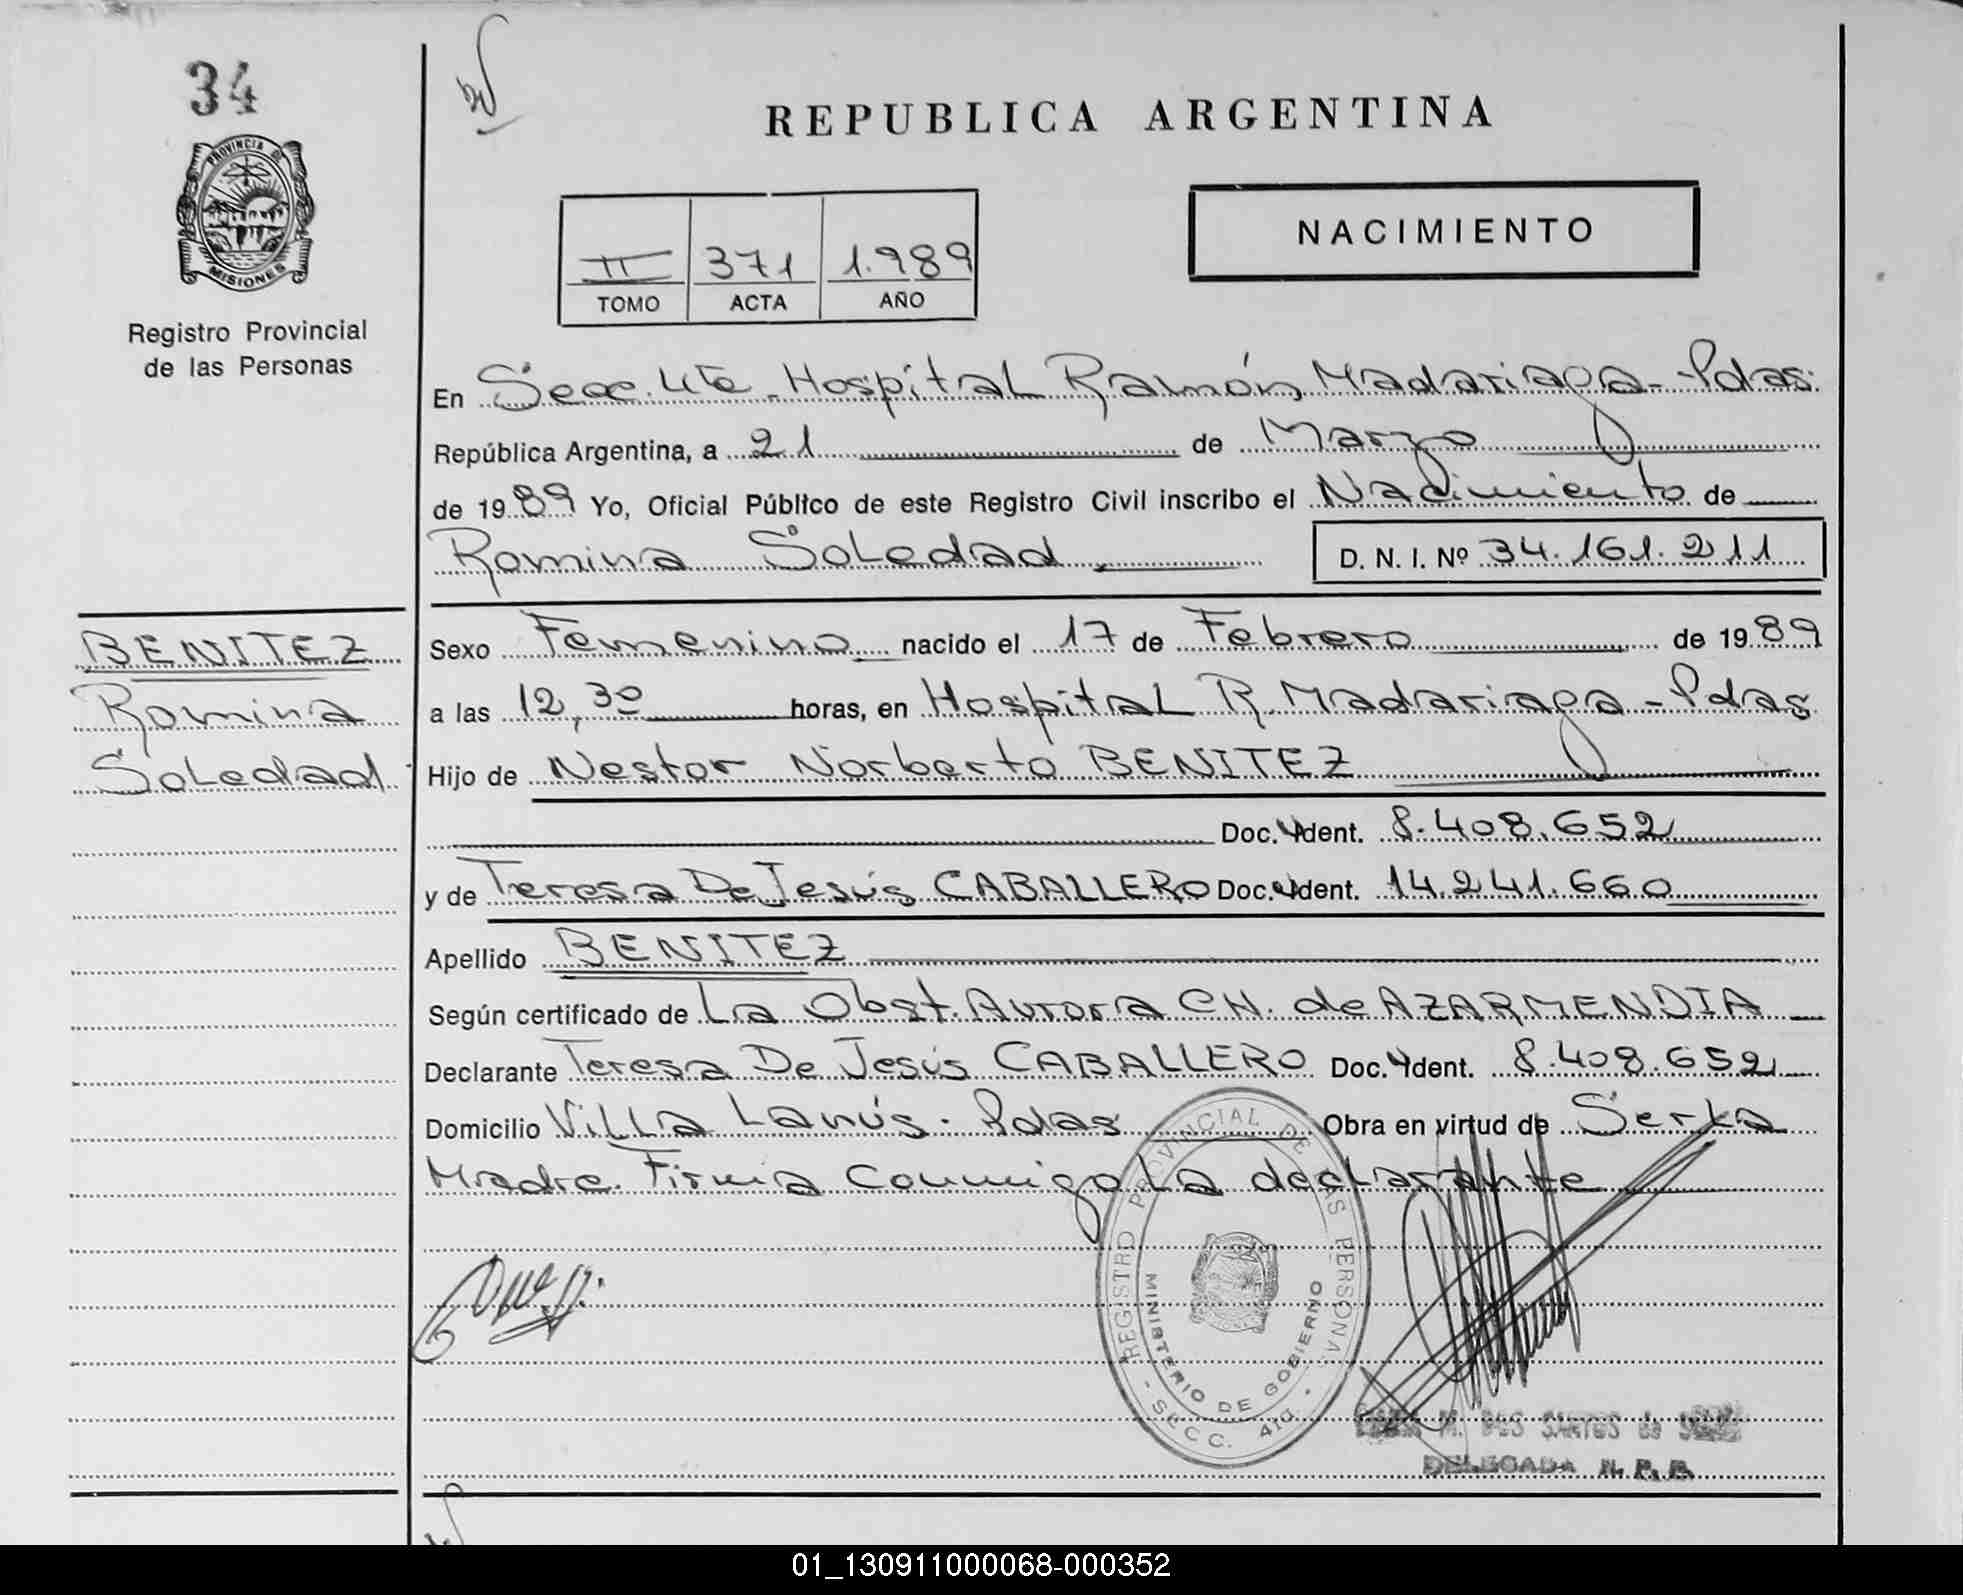 34
PROVINCIA DE
MISIONES
Registro Provincial
de las Personas
REPUBLICA ARGENTINA
II 371 1.989
TOMO ACTA AÑO
NACIMIENTO
En Secc. 4ta. Hospital Ramón Madariaga - Pdas.
República Argentina, a 21 de Marzo
de 1989 Yo, Oficial Público de este Registro Civil inscribo el Nacimiento de
Romina Soledad D. N. I. Nº 34.161.211
BENITEZ
Romina
Soledad
Sexo Femenino nacido el 17 de Febrero de 1989
a las 12,30 horas, en Hospital R. Madariaga - Pdas
Hijo de Nestor Norberto BENITEZ
Doc. Ident. 8.408.652
y de Teresa De Jesús CABALLERO Doc. Ident. 14.241.660
Apellido BENITEZ
Según certificado de La Obst. Aurora CH. de AZARMENDIA
Declarante Teresa De Jesús CABALLERO Doc. Ident. 8.408.652
Domicilio Villa Lanús. Pdas Obra en virtud de Ser la
Madre. Firma Conmigo La declarante
REGISTRO PROVINCIAL DE LAS PERSONAS
MINISTERIO DE GOBIERNO
- SECC. 4ta. -
M. DOS SANTOS de
DELEGADA R. P. P.
01_130911000068-000352